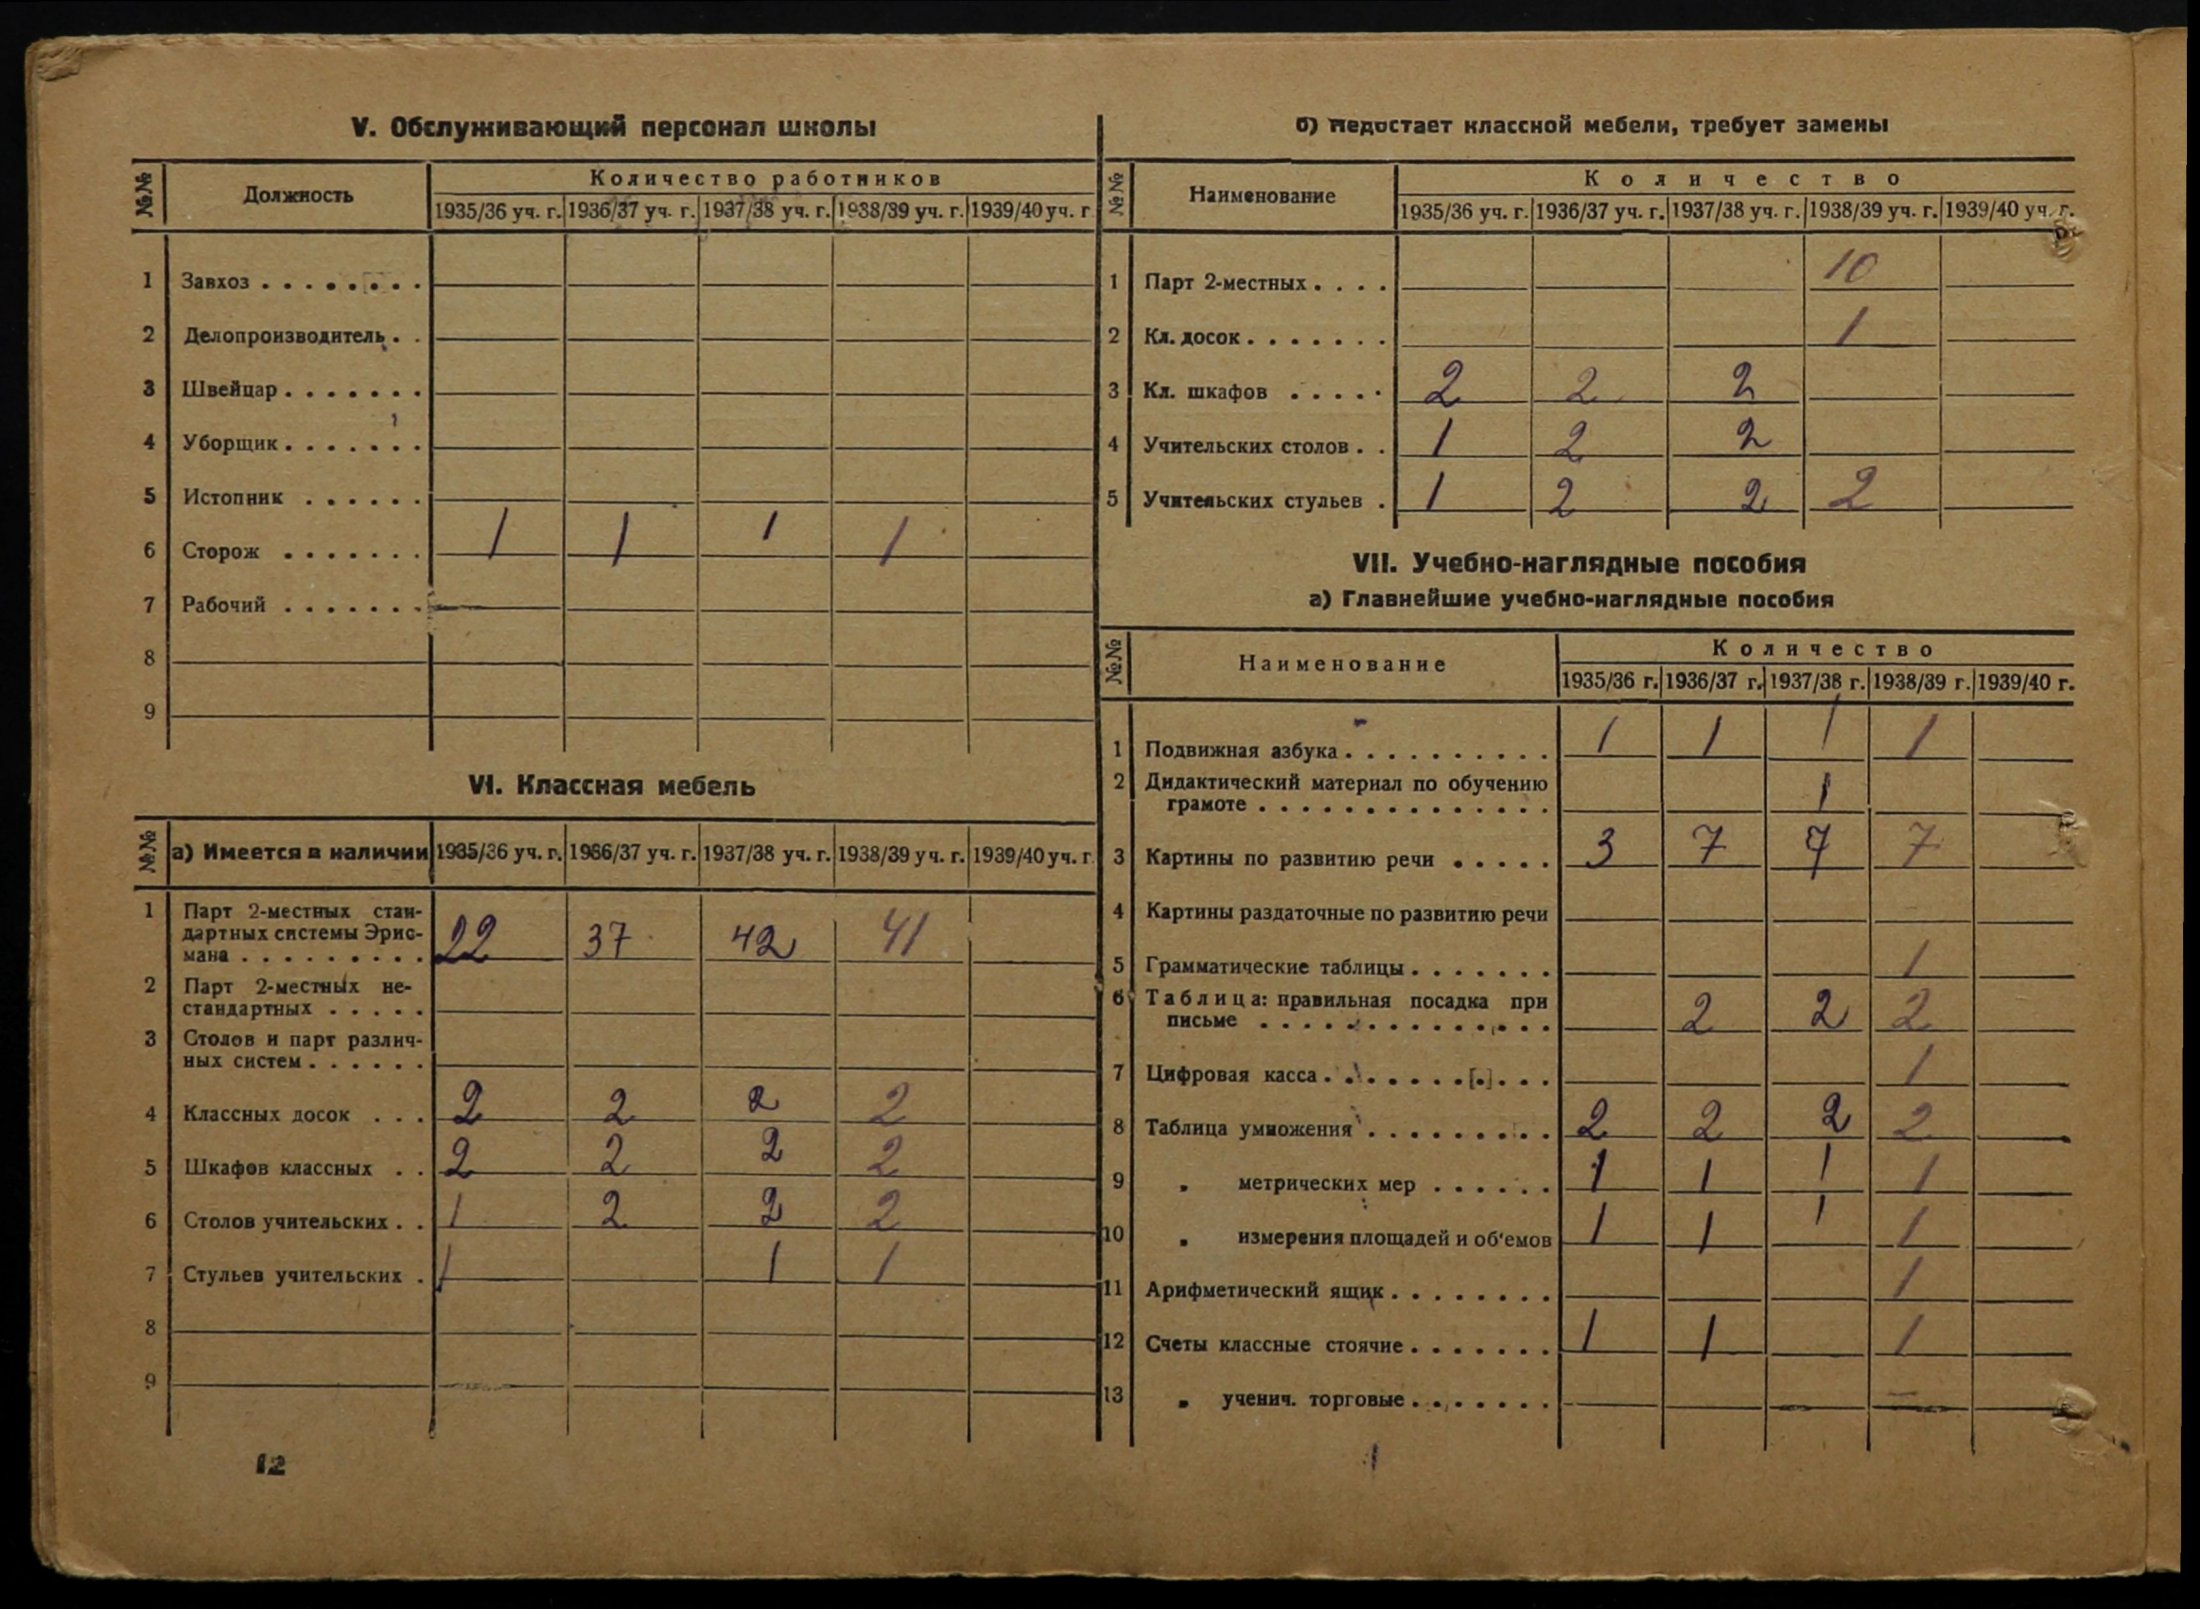 V. Обслуживающий персонал школы
№№ Должность Количество работников
1935/36 уч. г. 1936/37 уч. г. 1937/38 уч. г. 1938/39 уч. г. 1939/40 уч. г
1 Завхоз . . . . . . . .
2 Делопроизводитель . .
3 Швейцар . . . . . . .
4 Уборщик . . . . . . .
5 Истопник . . . . . .
6 Сторож . . . . . . . 1 1 1 1
7 Рабочий . . . . . . .
8
9
VI. Классная мебель
№№ а) Имеется в наличии 1935/36 уч. г. 1936/37 уч. г. 1937/38 уч. г. 1938/39 уч. г. 1939/40 уч. г
1 Парт 2-местных стан-
дартных системы Эрис-
мана . . . . . . . . . 22 37 42 41
2 Парт 2-местных не-
стандартных . . . . .
3 Столов и парт различ-
ных систем . . . . . .
4 Классных досок . . . 2 2 2 2
5 Шкафов классных . . 2 2 2 2
6 Столов учительских . . 1 2 2 2
7 Стульев учительских . 1 1 1
8
9
12
б) Недостает классной мебели, требует замены
№№ Наименование Количество
1935/36 уч. г. 1936/37 уч. г. 1937/38 уч. г. 1938/39 уч. г. 1939/40 уч. г.
1 Парт 2-местных . . . . 10
2 Кл. досок . . . . . . . 1
3 Кл. шкафов . . . . . 2 2 2
4 Учительских столов . . 1 2 2
5 Учительских стульев . 1 2 2 2
VII. Учебно-наглядные пособия
а) Главнейшие учебно-наглядные пособия
№№ Наименование Количество
1935/36 г. 1936/37 г. 1937/38 г. 1938/39 г. 1939/40 г.
1 Подвижная азбука . . . . . . . . . . 1 1 1 1
2 Дидактический материал по обучению
грамоте . . . . . . . . . . . . . . 1
3 Картины по развитию речи . . . . . 3 7 7 7
4 Картины раздаточные по развитию речи
5 Грамматические таблицы . . . . . . . 1
6 Таблица: правильная посадка при
письме . . . . . . . . . . . . . . 2 2 2
7 Цифровая касса . . . . . . . [.] . . . 1
8 Таблица умножения . . . . . . . . . 2 2 2 2
9 „ метрических мер . . . . . . 1 1 1 1
10 „ измерения площадей и об'емов 1 1 1 1
11 Арифметический ящик . . . . . . . . 1
12 Счеты классные стоячие . . . . . . . 1 1 1
13 „ ученич. торговые . . . . . . .